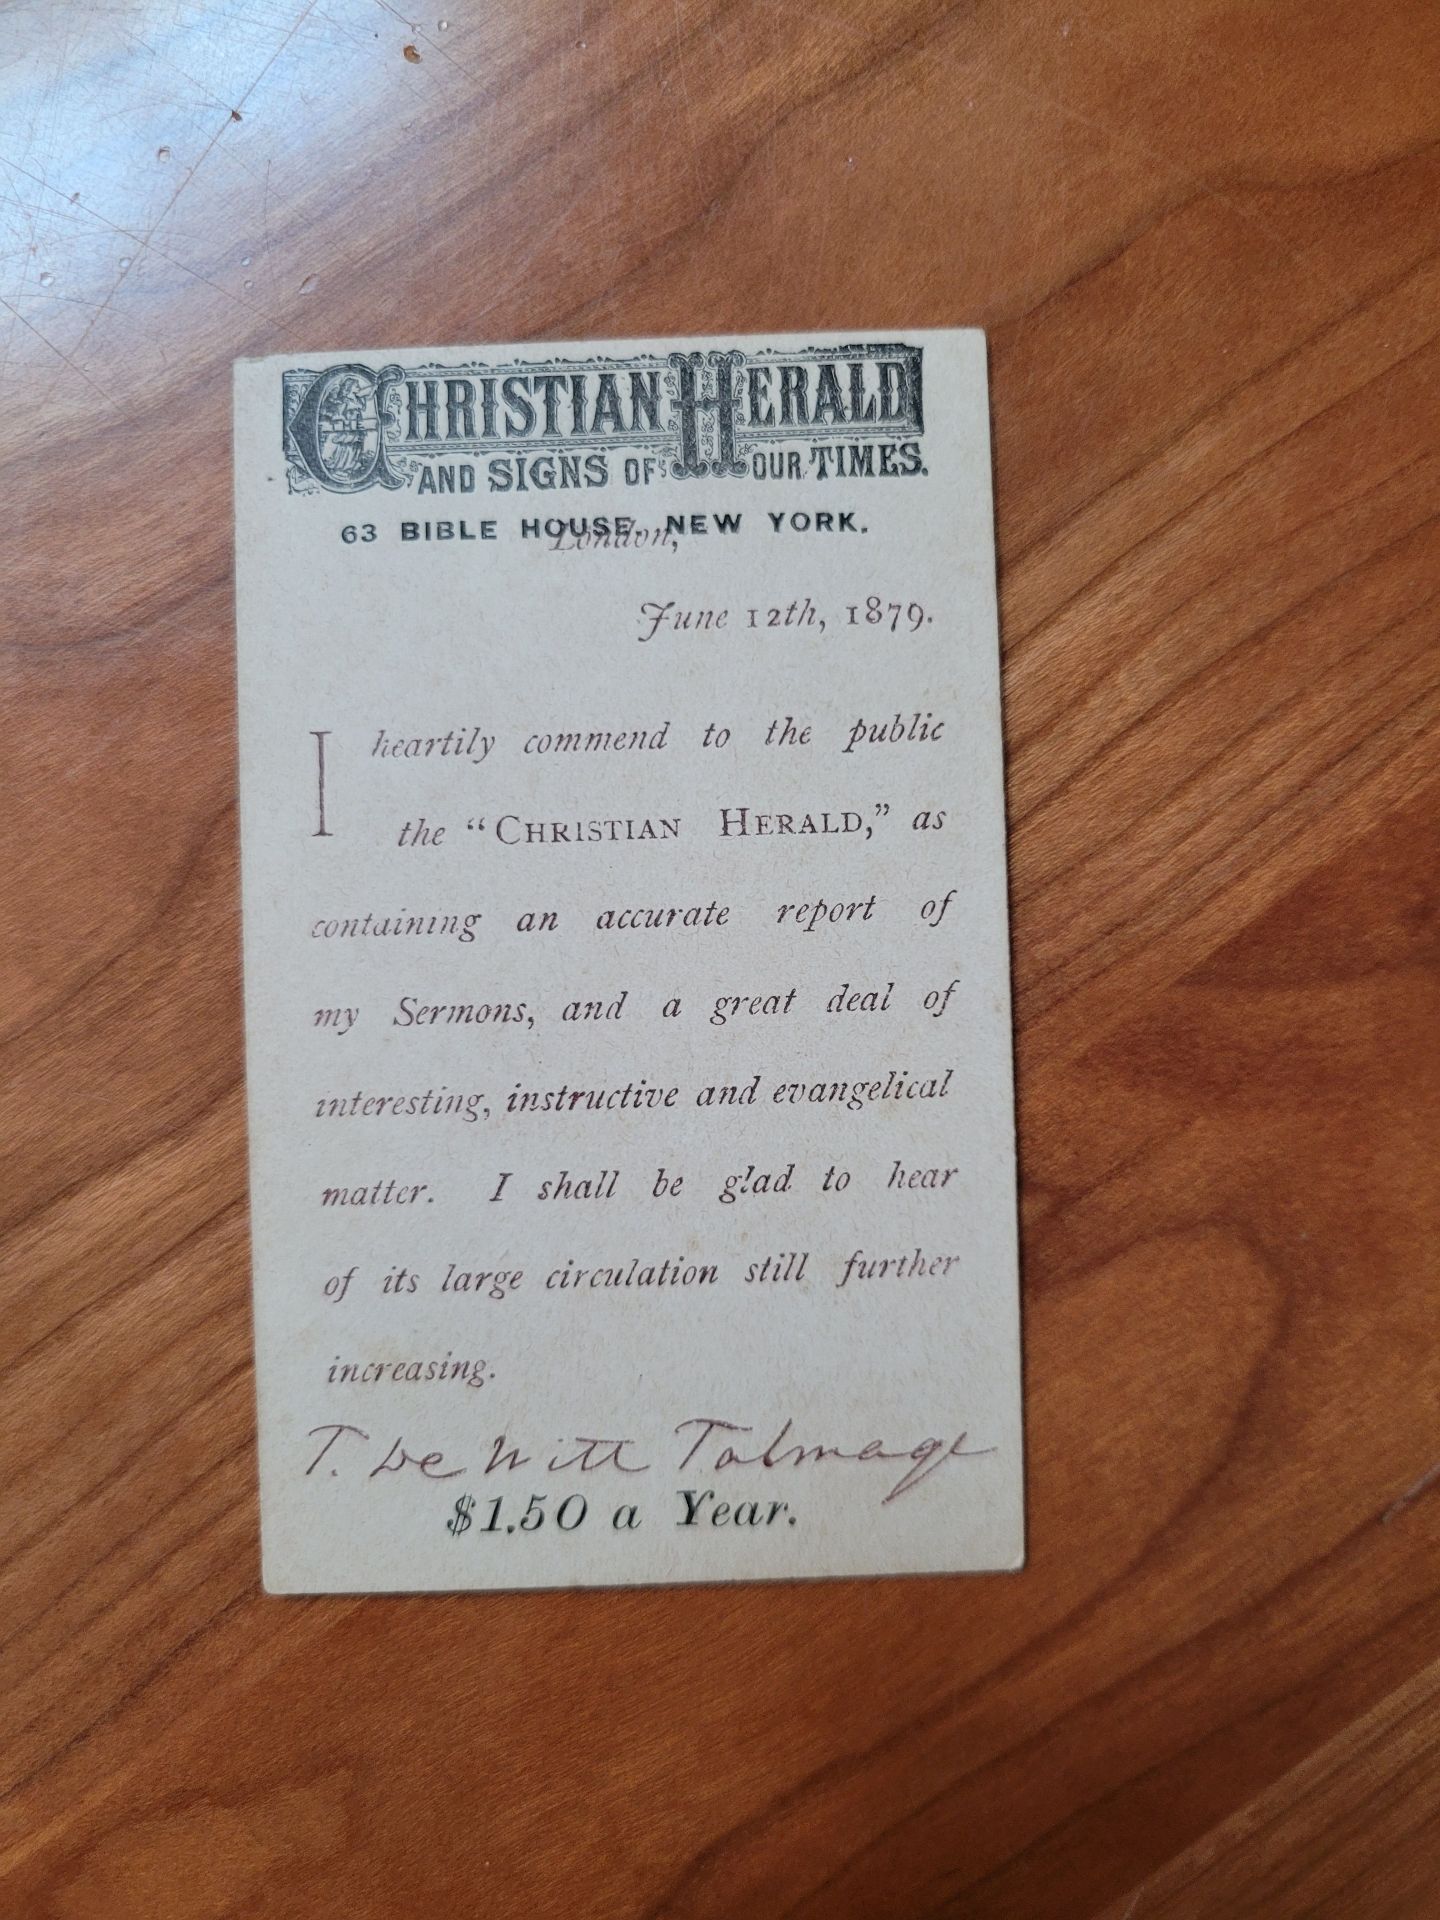 CHRISTIAN HERALD
AND SIGNS OF OUR TIMES.
63 BIBLE HOUSE, NEW YORK.
London,
June 12th, 1879.
I heartily commend to the public
the “CHRISTIAN HERALD,” as
containing an accurate report of
my Sermons, and a great deal of
interesting, instructive and evangelical
matter. I shall be glad to hear
of its large circulation still further
increasing.
T. De Witt Talmage
$1.50 a Year.